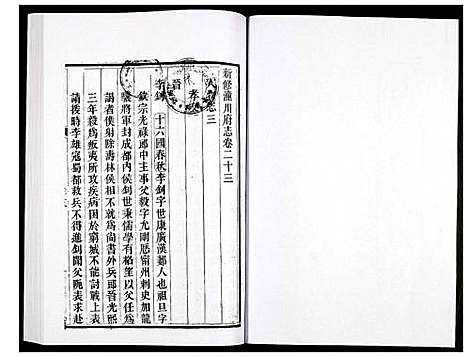 新修潼川府志卷二十三
人物志三
晉
孝友
李釗　十六國春秋李釗字世康廣漢郪人也祖旦字
欽宗光祿郎中主事父毅字允剛歷甯州刺史加龍
驤將軍封成都內侯釗世秉儒學有格望以父任
謁者僕射除壽林侯相不就爲尚書外兵郎晉光熙
三年毅爲叛夷所攻疾病困於窮城不能討戰上表
請援時李雄寇蜀都救兵不得進釗聞父陷表求赴